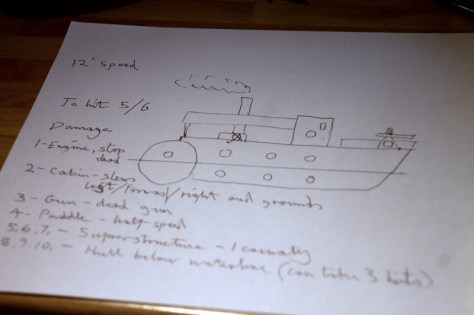 12" speed
To hit 5/6
Damage
1 - Engine, stop
dead
2 - Cabin - slews
left/forward/right and grounds
3 - Gun - dead gun
4 - Paddle - half speed
5, 6, 7, - Superstructure - 1 casualty
8, 9, 10, - Hull below waterline (can take 3 hits)